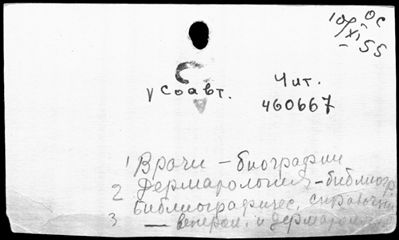 10/XI-55
ОС
С
√ соавт.
Чит.
460667
1 Врачи - биографии
2 Дерматология - библиогр
Библиографичес. справочни
3 — венерол. и дерматол